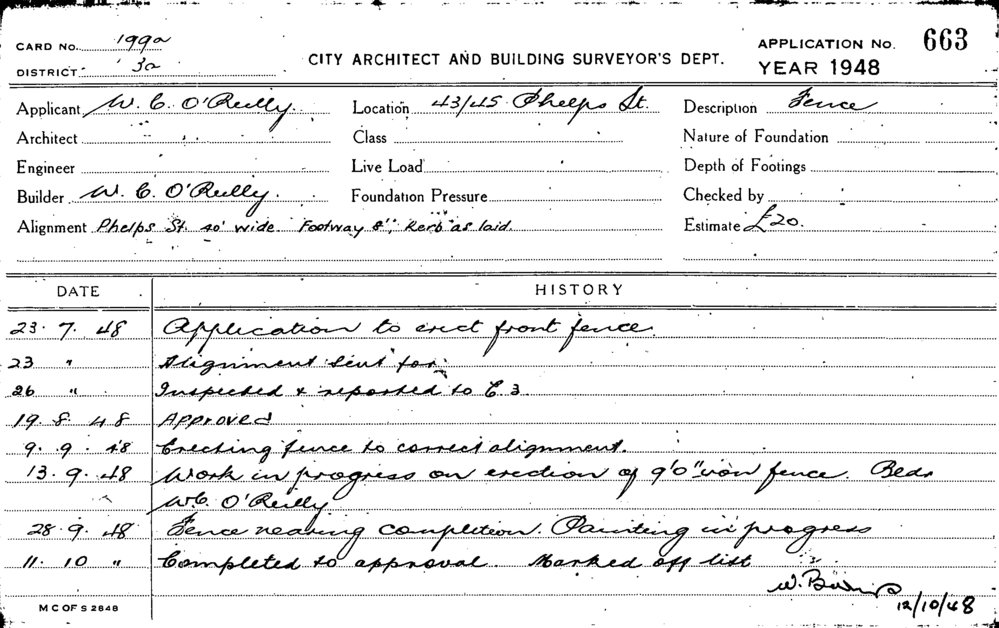 CARD NO. 199a
DISTRICT 3a
CITY ARCHITECT AND BUILDING SURVEYOR'S DEPT.
APPLICATION NO. 663
YEAR 1948
Applicant W. C. O'Reilly. Location 43/45 Phelps St. Description Fence
Architect Class Nature of Foundation
Engineer Live Load Depth of Footings
Builder W. C. O'Reilly. Foundation Pressure Checked by
Alignment Phelps St. 40' wide. Footway 8", Kerb as laid. Estimate £20.
DATE HISTORY
23. 7. 48 Application to erect front fence.
23 " Alignment sent for.
26 " Inspected & reported to C.3.
19. 8. 48 Approved
9. 9. 48 Erecting fence to correct alignment.
13. 9. 48 Work in progress on erection of 9'0" iron fence. Bldr
W.C. O'Reilly
28. 9. 48 Fence nearing completion. Painting in progress
11. 10 " Completed to approval. Marked off list
W.
12/10/48
M C OF S 2848